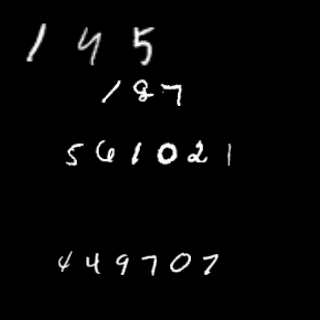 145
187
561021
449707